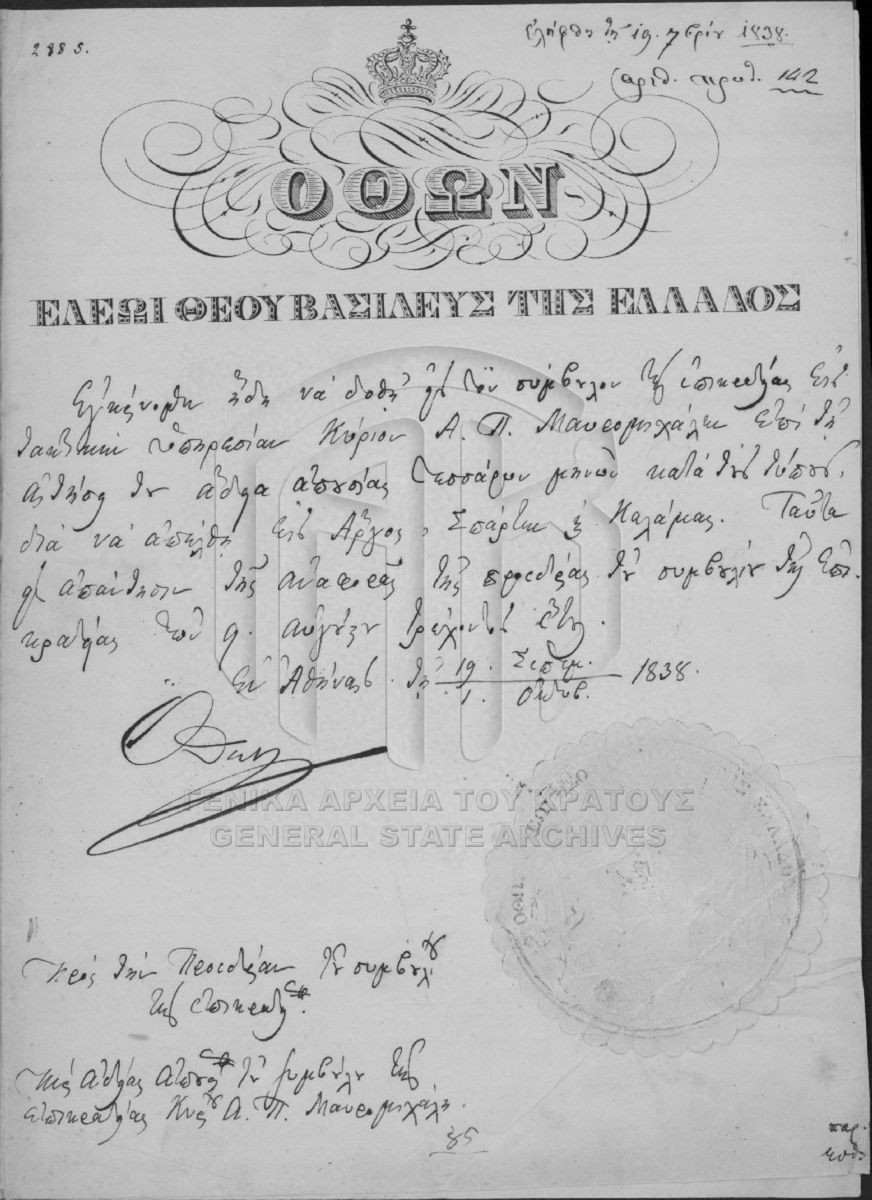 2885.
ἐλήφθη τῇ 19. 7βρίου 1838.
ἀριθ. πρωτ. 142
ΟΘΩΝ
ΕΛΕΩΙ ΘΕΟΥ ΒΑΣΙΛΕΥΣ ΤΗΣ ΕΛΛΑΔΟΣ
ἤδη νὰ δοθῇ εἰς τὸν σύμβουλον τῆς ἐπικρατείας εἰς
τακτικὴν ὑπηρεσίαν Κύριον Α. Π. Μαυρομιχάλην ἐπὶ τῇ
αἰτήσει του ἄδεια ἀπουσίας τεσσάρων μηνῶν κατὰ τοὺς τύπους,
διὰ νὰ ἀπέλθῃ εἰς Ἄργος, Σπάρτην καὶ Καλάμας. Ταῦτα
εἰς ἀπάντησιν τῆς ἀναφορᾶς τῆς προεδρείας τοῦ συμβουλίου τῆς ἐπι-
κρατείας τῶν 9. αὐγούστου τρέχοντος ἔτους.
Ἐν Ἀθήναις τῇ 19. Σεπτεμ. 1838.
1. Ὀκτωβ.
Ὄθων
ΓΕΝΙΚΑ ΑΡΧΕΙΑ ΤΟΥ ΚΡΑΤΟΥΣ
GENERAL STATE ARCHIVES
Πρὸς τὴν Προεδρείαν τοῦ συμβουλίου
τῆς ἐπικρατείας.
ἀδείας ἀπουσίας τοῦ συμβούλου τῆς
ἐπικρατείας Κυρίου Α. Π. Μαυρομιχάλη.